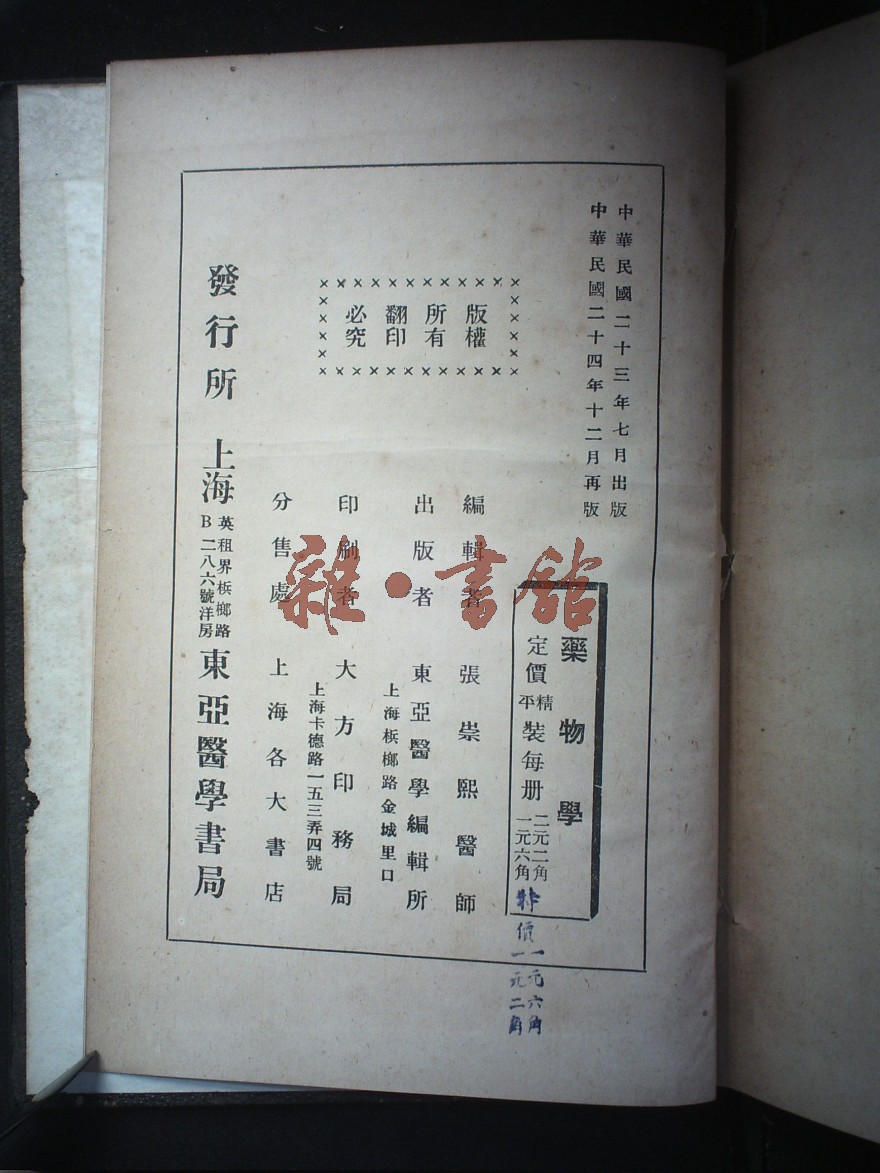 中華民國二十三年七月出版
中華民國二十四年十二月再版
藥物學
定價精平裝每册二元二角一元六角
特價一元六角一元二角
版權
所有
翻印
必究
編輯者 張崇熙醫師
出版者 東亞醫學編輯所
上海梹榔路金城里口
印刷者 大方印務局
上海卡德路一五三弄四號
分售處 上海各大書店
發行所 上海英租界梹榔路B二八六號洋房東亞醫學書局
雜·書館